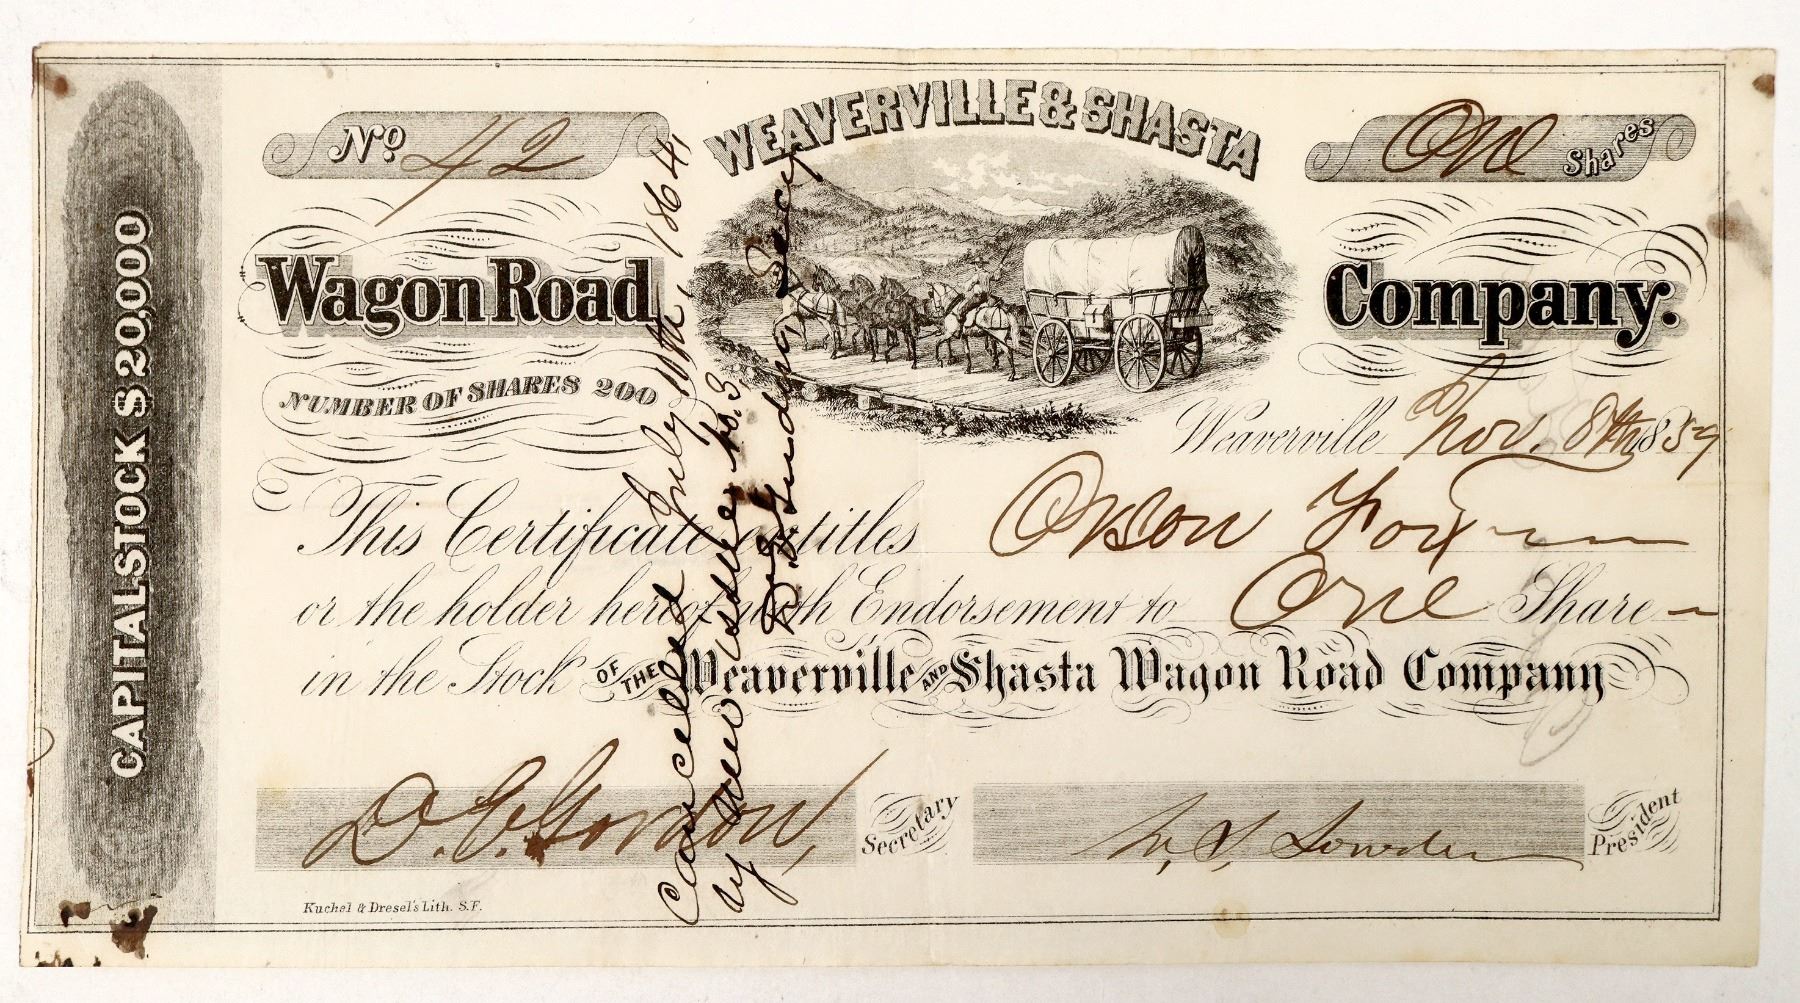 WEAVERVILLE & SHASTA
No. 42
One Shares
Wagon Road Company.
NUMBER OF SHARES 200
CAPITAL STOCK $20,000
Weaverville Nov. 8th 1859
This Certificate entitles Orson
or the holder hereof with Endorsement to One Share
in the Stock OF THE Weaverville AND Shasta Wagon Road Company
D. E. Gordon, Secretary
President
Kuchel & Dresel's Lith. S.F.
Cancelled July 10th, 1864,
Secy